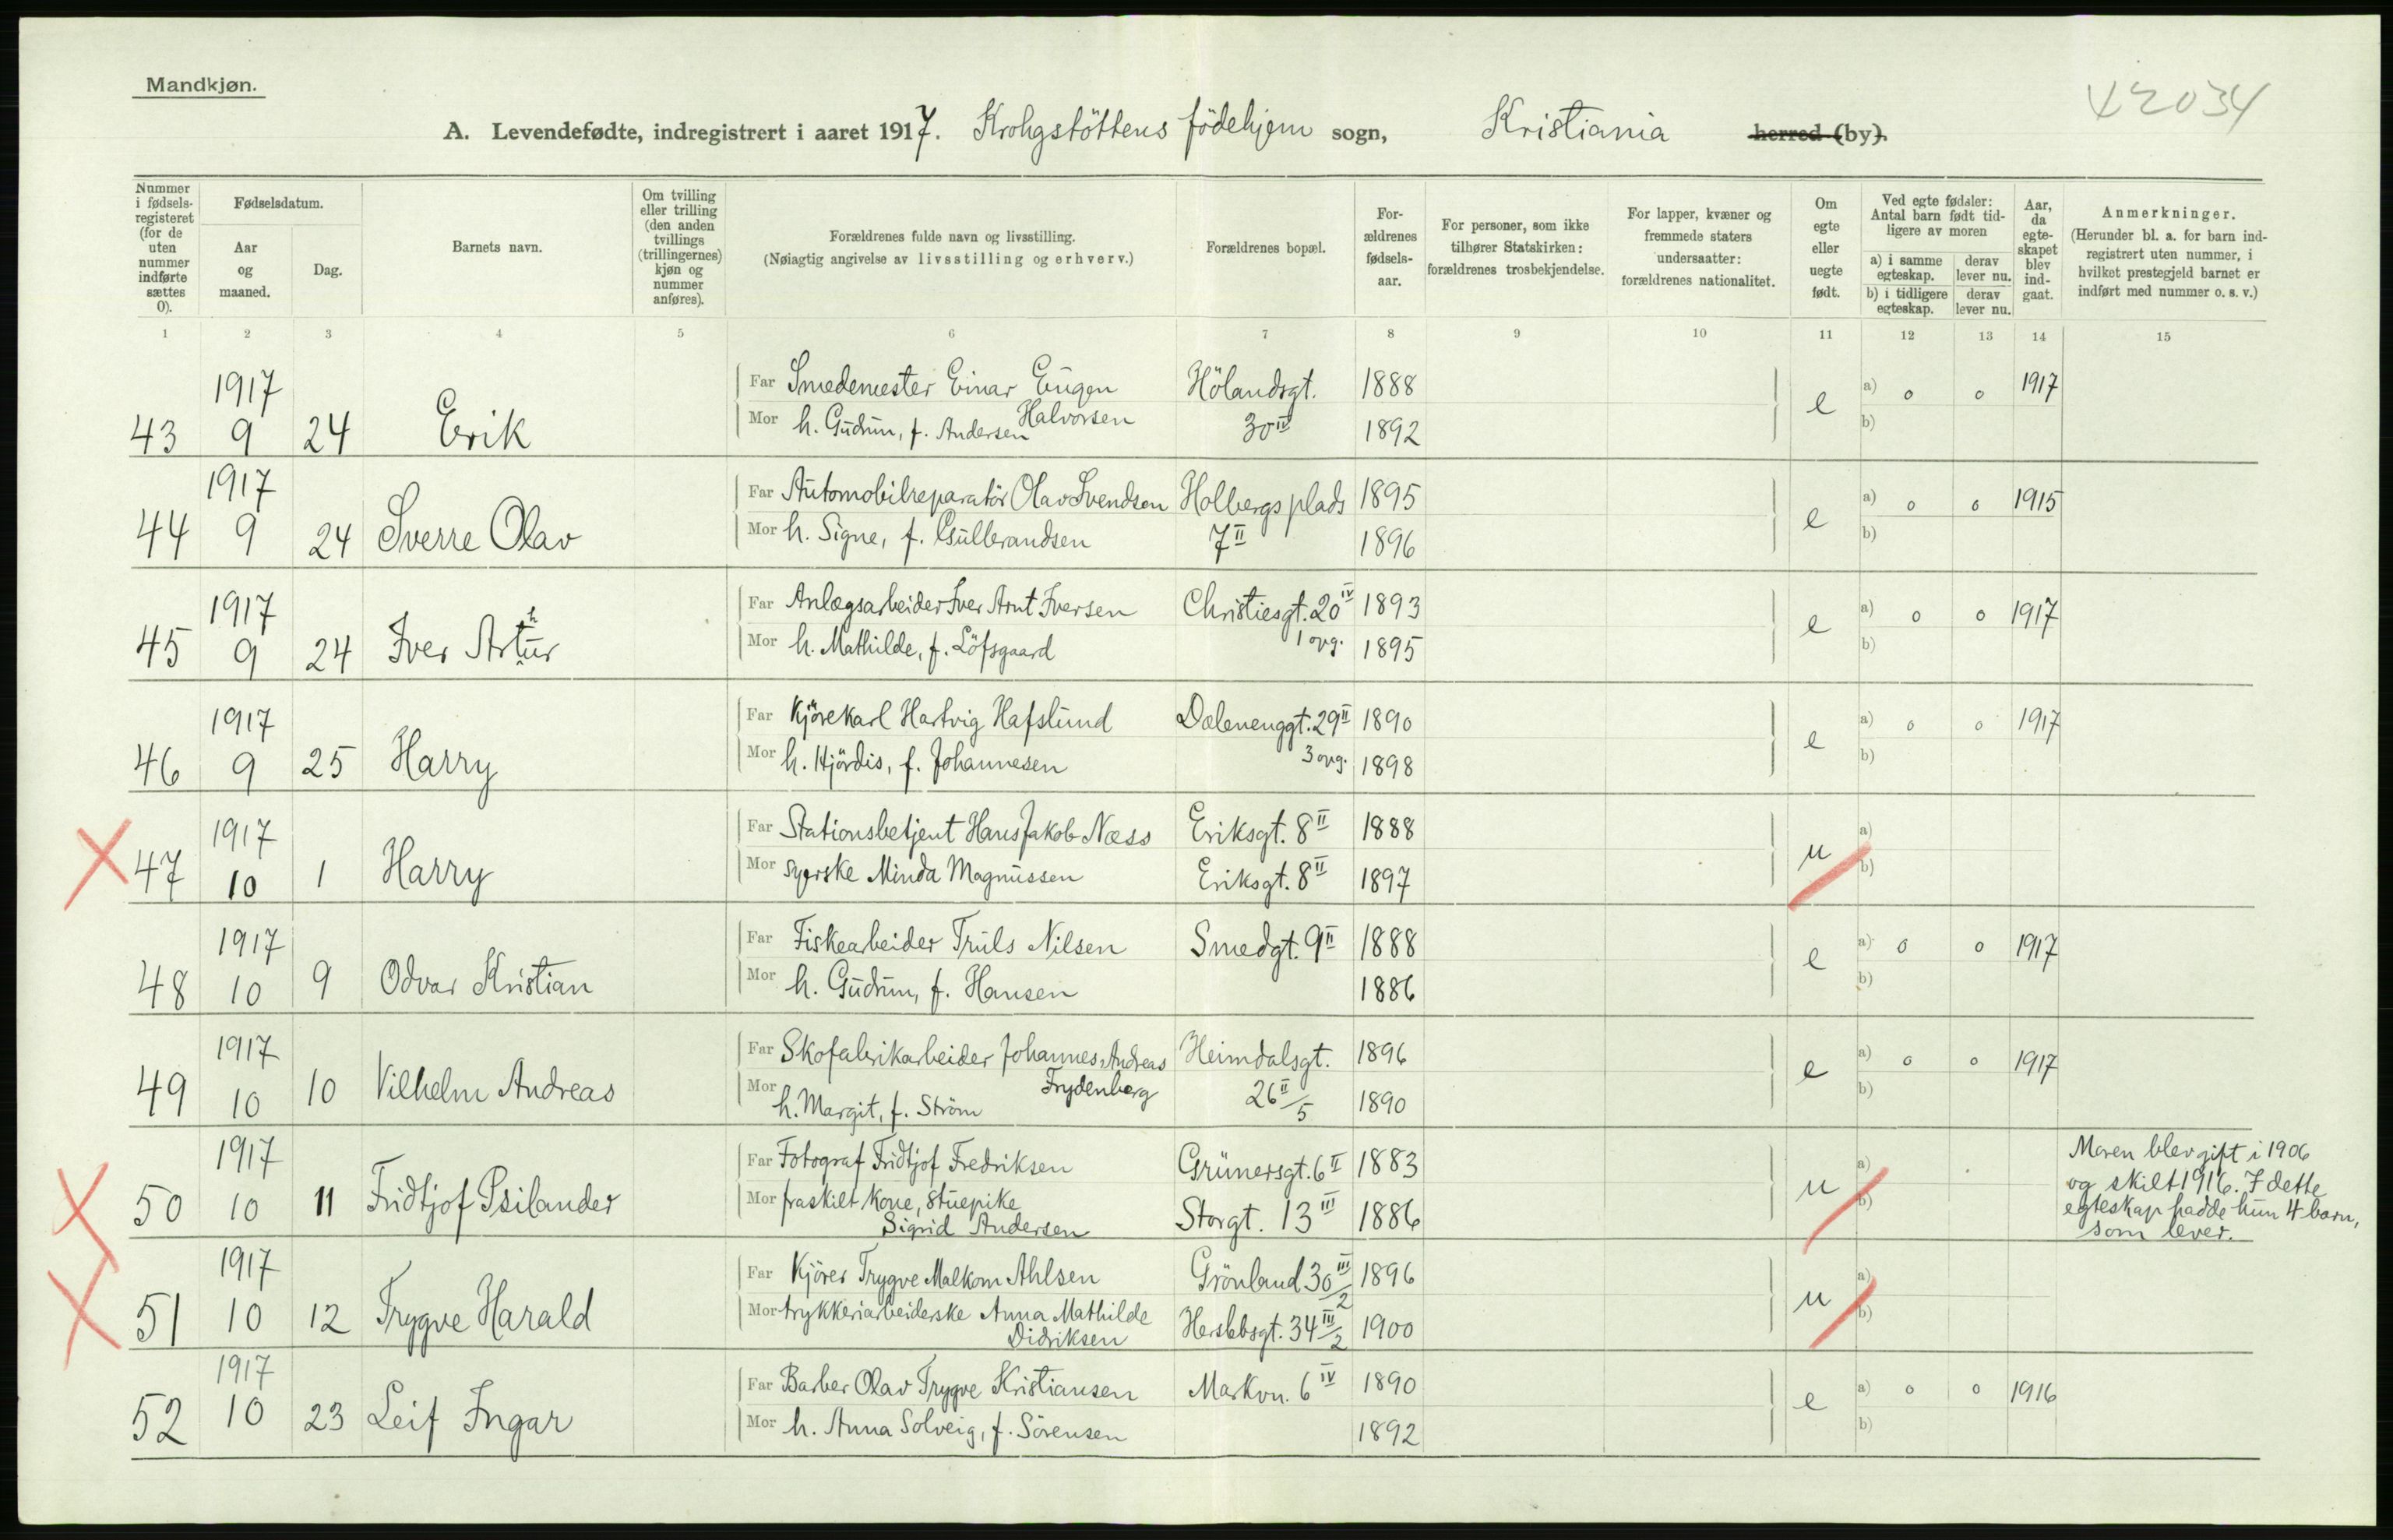 Mandkjøn.
42034
A. Levendefødte, indregistrert i aaret 1917. Krohgstöttens födehjem sogn, Kristiania herred (by).
Nummer i fødsels-registeret (for de uten nummer indførte sættes 0).
Fødselsdatum.
Aar og maaned.
Dag.
Barnets navn.
Om tvilling eller trilling (den anden tvillings (trillingernes) kjøn og nummer anføres).
Forældrenes fulde navn og livsstilling.
(Nøiagtig angivelse av livsstilling og erhverv.)
Forældrenes bopæl.
For-ældrenes fødsels-aar.
For personer, som ikke tilhører Statskirken: forældrenes trosbekjendelse.
For lapper, kvæner og fremmede staters undersaatter: forældrenes nationalitet.
Om egte eller uegte født.
Ved egte fødsler: Antal barn født tid-ligere av moren
a) i samme egteskap.
derav lever nu.
b) i tidligere egteskap.
derav lever nu.
Aar, da egte-skapet blev ind-gaat.
Anmerkninger.
(Herunder bl. a. for barn ind-registrert uten nummer, i hvilket prestegjeld barnet er indført med nummer o. s. v.)
1 2 3 4 5 6 7 8 9 10 11 12 13 14 15
1917 Far Smedemester Einar Eugen Hölandsgt. 1888 a) 0 0 1917
43 9 24 Erik Mor h. Gudrun, f. Andersen Halvorsen 30 IV 1892 e b)
1917 Far Automobilreparatör Olav Svendsen Holbergs plads 1895 a) 0 0 1915
44 9 24 Sverre Olav Mor h. Signe, f. Gulbrandsen 7 II 1896 e b)
1917 Far Anlægsarbeider Iver Arnt Iversen Christiesgt. 20 IV 1893 a) 0 0 1917
45 9 24 Iver Arthur Mor h. Mathilde, f. Löfsgaard 1 opg. 1895 e b)
1917 Far Kjörekarl Hartvig Hafslund Dælenenggt. 29 II 1890 a) 0 0 1917
46 9 25 Harry Mor h. Hjördis, f. Johannesen 3 opg. 1898 e b)
1917 Far Stationsbetjent Hans Jakob Næss Eriksgt. 8 II 1888 a)
47 10 1 Harry Mor syerske Minda Magnussen Eriksgt. 8 II 1897 u b)
1917 Far Fiskearbeider Truls Nilsen Smedgt. 9 II 1888 a) 0 0 1917
48 10 9 Odvar Kristian Mor h. Gudrun, f. Hansen 1886 e b)
1917 Far Skofabrikarbeider Johannes Andreas Heimdalsgt. 1896 a) 0 0 1917
49 10 10 Vilhelm Andreas Mor h. Margit, f. Ström Frydenberg 26 II/5 1890 e b)
1917 Far Fotograf Fridtjof Fredriksen Grünersgt. 6 II 1883 a) Moren blev gift i 1906
50 10 11 Fridtjof Psilander Mor fraskilt kone, stuepike u b) og skilt 1916. I dette
Sigrid Andersen Storgt. 13 III 1886 egteskap hadde hun 4 barn,
som lever.
1917 Far Kjörer Trygve Malkom Ahlsen Grönland 30 III/2 1896 a)
51 10 12 Trygve Harald Mor trykkeriarbeiderske Anna Mathilde u b)
Didriksen Herslebsgt. 34 III/2 1900
1917 Far Barber Olav Trygve Kristiansen Markvn. 6 IV 1890 a) 0 0 1916
52 10 23 Leif Ingar Mor h. Anna Solveig, f. Sörensen 1892 e b)